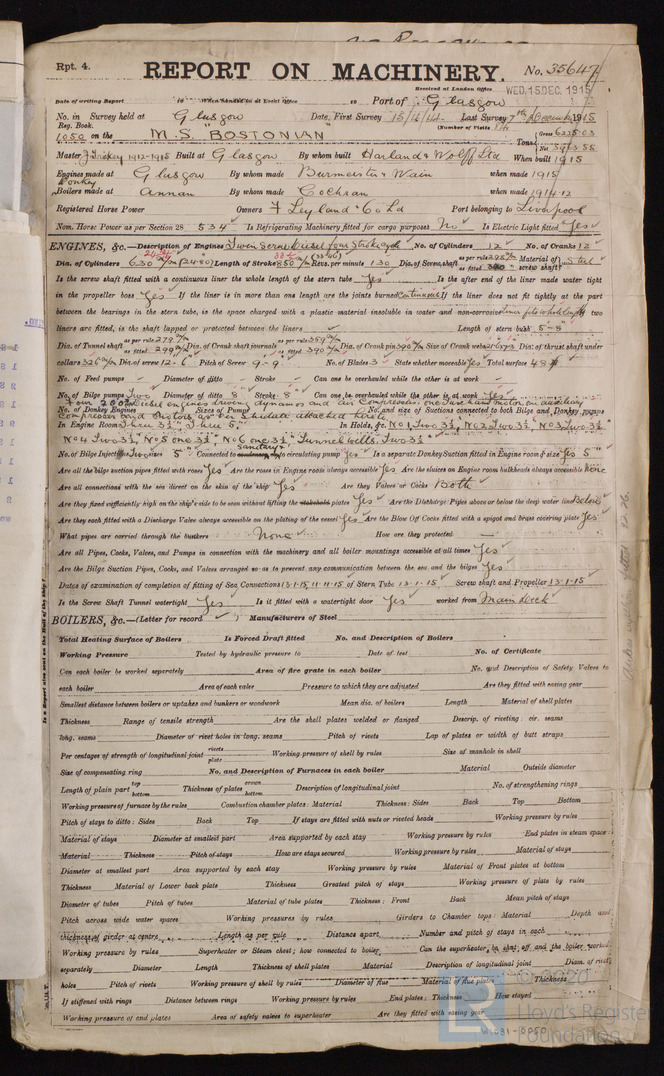 Rpt. 4.
REPORT ON MACHINERY.
No. 35647
Received at London Office WED. 15 DEC. 1915
Date of writing Report 19 When handed in at Local Office 19 Port of Glasgow
No. in Survey held at Glasgow Date, First Survey Last Survey 7th December 1915
Reg. Book. (Number of Visits
1050 on the M.S. "BOSTONIAN" Tons Gross 6225.03
Net
Master 1912-1915 Built at Glasgow By whom built Harland & Wolff Ltd When built 1915
Engines made at Glasgow By whom made Burmeister & Wain when made 1915
Donkey
Boilers made at Annan By whom made Cochran when made 1914-12
Registered Horse Power Owners F Leyland & Co Ld Port belonging to Liverpool
Nom. Horse Power as per Section 28 534 Is Refrigerating Machinery fitted for cargo purposes No Is Electric Light fitted Yes
ENGINES, &c.—Description of Engines Twin Screw Diesel four stroke cycle No. of Cylinders 12 No. of Cranks 12
Dia. of Cylinders 630 m/m (24.80) Length of Stroke 850 m/m Revs. per minute 130 Dia. of Screw shaft as per rule as fitted Material of screw shaft Steel
Is the screw shaft fitted with a continuous liner the whole length of the stern tube Yes Is the after end of the liner made water tight
in the propeller boss Yes If the liner is in more than one length are the joints burned Continuous If the liner does not fit tightly at the part
between the bearings in the stern tube, is the space charged with a plastic material insoluble in water and non-corrosive If two
liners are fitted, is the shaft lapped or protected between the liners Length of stern bush 5-8"
Dia. of Tunnel shaft as per rule as fitted Dia. of Crank shaft journals as per rule as fitted 390 m/m Dia. of Crank pin 390 m/m Size of Crank webs Dia. of thrust shaft under
collars 326 m/m Dia. of screw 12-6" Pitch of Screw 9-9" No. of Blades 3 State whether moveable Yes Total surface 48
No. of Feed pumps Diameter of ditto Stroke Can one be overhauled while the other is at work
No. of Bilge pumps Two Diameter of ditto 8 Stroke 8 Can one be overhauled while the other is at work Yes
No. of Donkey Engines Sizes of Pumps No. and size of Suctions connected to both Bilge and Donkey pumps
In Engine Room Three 3½", Three 5" In Holds, &c. No 1 Two 3½", No 2 Two 3½", No 3 Two 3½"
No 4 Two 3½", No 5 one 3½", No 6 one 3½", Tunnel wells, Two 3½"
No. of Bilge Injections Two sizes 5" Connected to sanitary circulating pump Yes Is a separate Donkey Suction fitted in Engine room & size Yes 5"
Are all the bilge suction pipes fitted with roses Yes Are the roses in Engine room always accessible Yes Are the sluices on Engine room bulkheads always accessible None
Are all connections with the sea direct on the skin of the ship Yes Are they Valves or Cocks Both
Are they fixed sufficiently high on the ship's side to be seen without lifting the stokehold plates Yes Are the Discharge Pipes above or below the deep water line Below
Are they each fitted with a Discharge Valve always accessible on the plating of the vessel Yes Are the Blow Off Cocks fitted with a spigot and brass covering plate Yes
What pipes are carried through the bunkers None How are they protected
Are all Pipes, Cocks, Valves, and Pumps in connection with the machinery and all boiler mountings accessible at all times Yes
Are the Bilge Suction Pipes, Cocks, and Valves arranged so as to prevent any communication between the sea and the bilges Yes
Dates of examination of completion of fitting of Sea Connections 13-1-15, 11-11-15 of Stern Tube 13-1-15 Screw shaft and Propeller 13-1-15
Is the Screw Shaft Tunnel watertight Yes Is it fitted with a watertight door Yes worked from Main Deck
BOILERS, &c.—(Letter for record ) Manufacturers of Steel
Total Heating Surface of Boilers Is Forced Draft fitted No. and Description of Boilers
Working Pressure Tested by hydraulic pressure to Date of test No. of Certificate
Can each boiler be worked separately Area of fire grate in each boiler No. and Description of Safety Valves to
each boiler Area of each valve Pressure to which they are adjusted Are they fitted with easing gear
Smallest distance between boilers or uptakes and bunkers or woodwork Mean dia. of boilers Length Material of shell plates
Thickness Range of tensile strength Are the shell plates welded or flanged Descrip. of riveting: cir. seams
long. seams Diameter of rivet holes in long. seams Pitch of rivets Lap of plates or width of butt straps
Per centages of strength of longitudinal joint rivets plate Working pressure of shell by rules Size of manhole in shell
Size of compensating ring No. and Description of Furnaces in each boiler Material Outside diameter
Length of plain part top bottom Thickness of plates crown bottom Description of longitudinal joint No. of strengthening rings
Working pressure of furnace by the rules Combustion chamber plates: Material Thickness: Sides Back Top Bottom
Pitch of stays to ditto: Sides Back Top If stays are fitted with nuts or riveted heads Working pressure by rules
Material of stays Diameter at smallest part Area supported by each stay Working pressure by rules End plates in steam space:
Material Thickness Pitch of stays How are stays secured Working pressure by rules Material of stays
Diameter at smallest part Area supported by each stay Working pressure by rules Material of Front plates at bottom
Thickness Material of Lower back plate Thickness Greatest pitch of stays Working pressure of plate by rules
Diameter of tubes Pitch of tubes Material of tube plates Thickness: Front Back Mean pitch of stays
Pitch across wide water spaces Working pressures by rules Girders to Chamber tops: Material Depth and
thickness of girder at centre Length as per rule Distance apart Number and pitch of stays in each
Working pressure by rules Superheater or Steam chest; how connected to boiler Can the superheater be shut off and the boiler worked
separately Diameter Length Thickness of shell plates Material Description of longitudinal joint Diam. of rivet
holes Pitch of rivets Working pressure of shell by rules Diameter of flue Material of flue plates Thickness
If stiffened with rings Distance between rings Working pressure by rules End plates: Thickness How stayed
Working pressure of end plates Area of safety valves to superheater Are they fitted with easing gear
© 2020
Lloyd's Register
Foundation